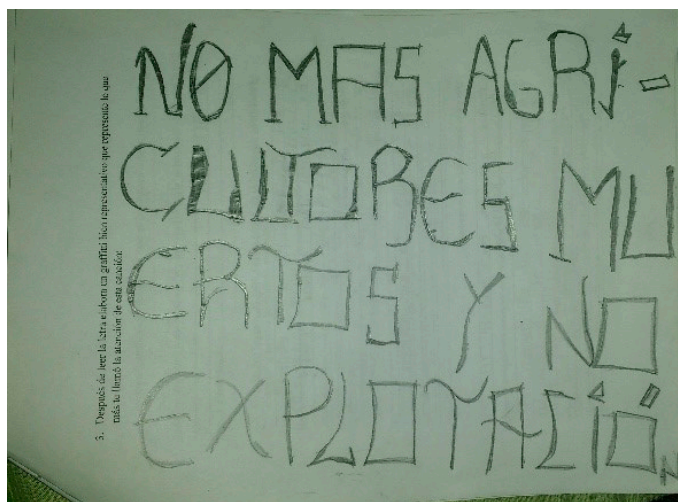 3. Después de leer la letra elabora un graffiti bien representativo que represente lo que
más te llamó la atención de esta canción
NO MAS AGRI-
CULTORES MU
ERTOS Y NO
EXPLOTACIÓ